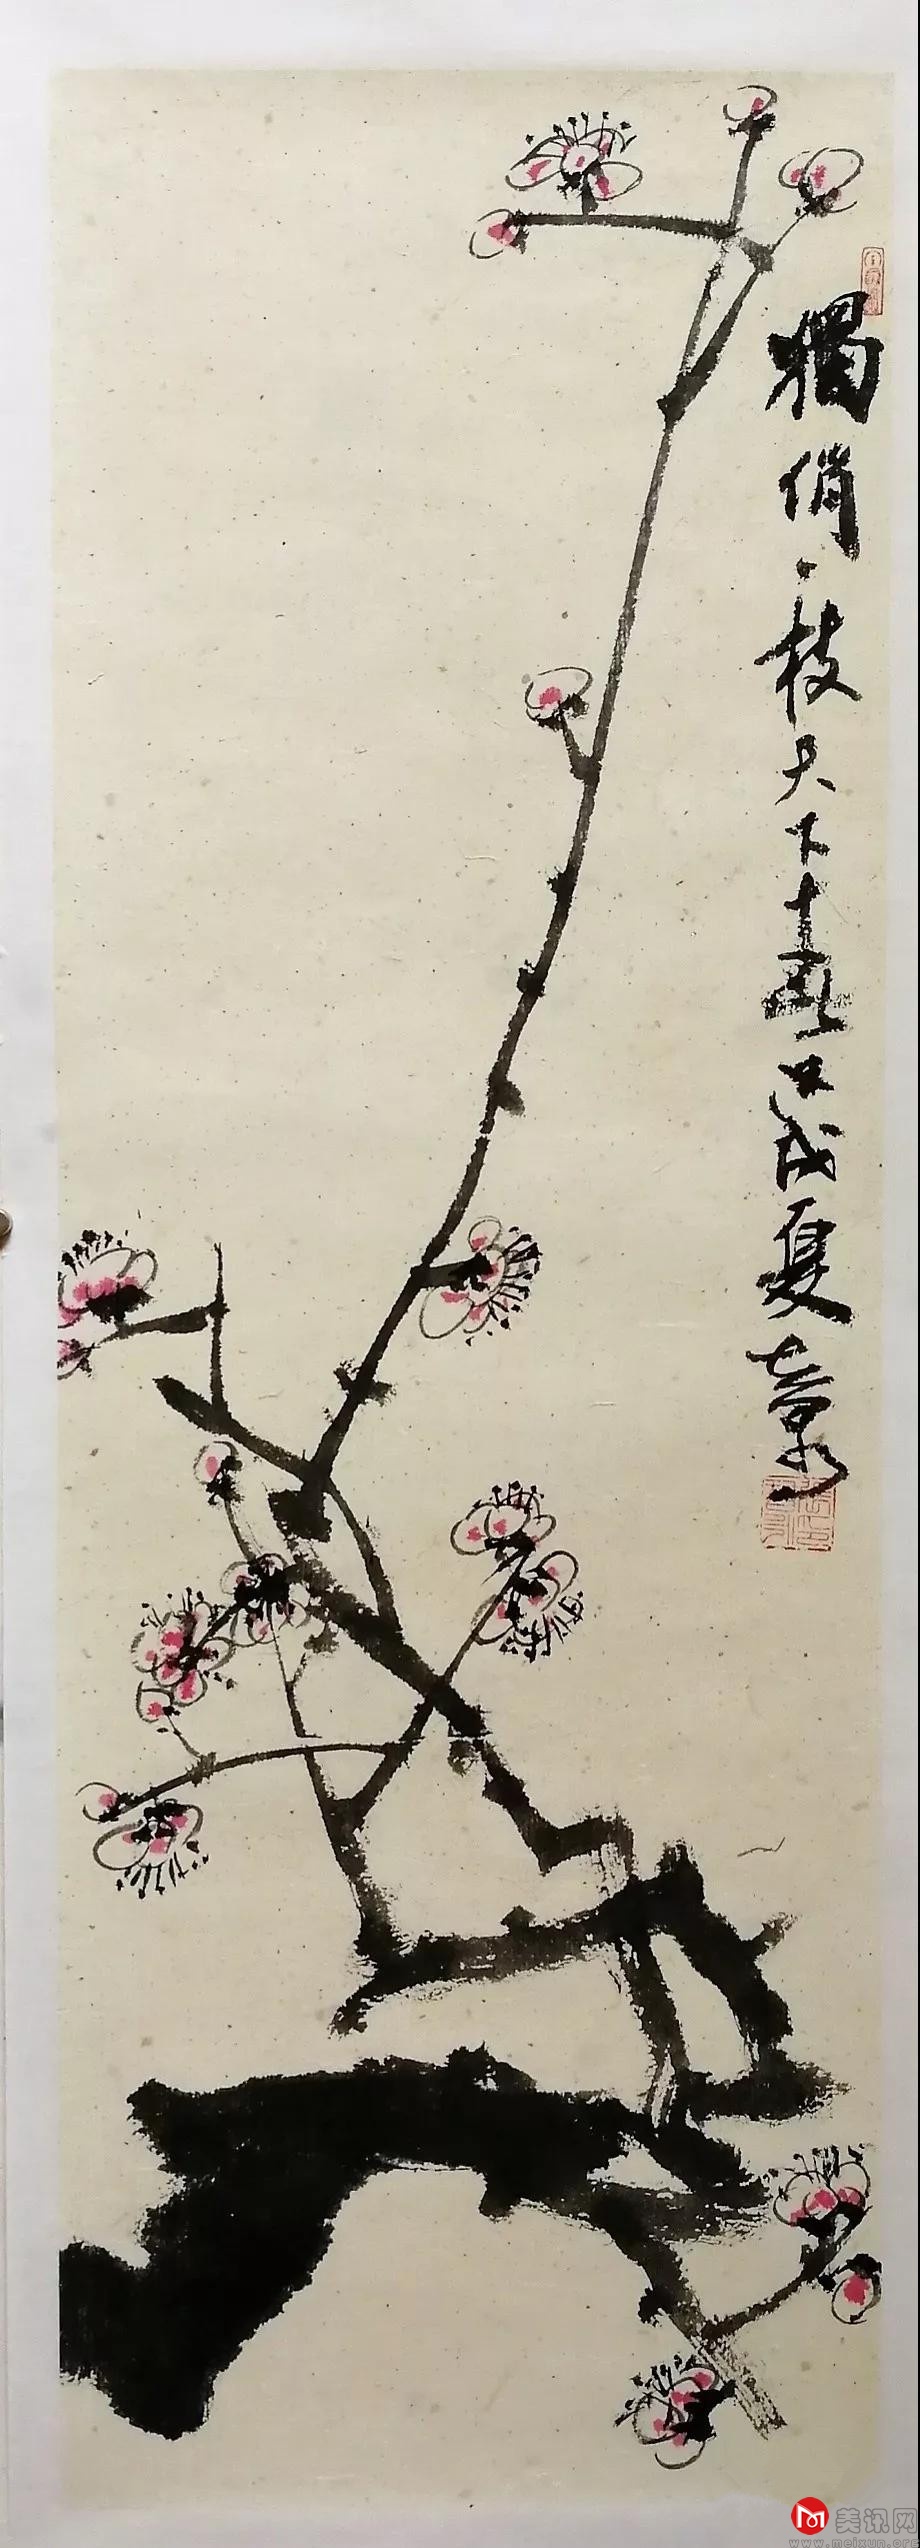 獨俏一枝天下春戊戌夏
美讯网
www.meixun.org